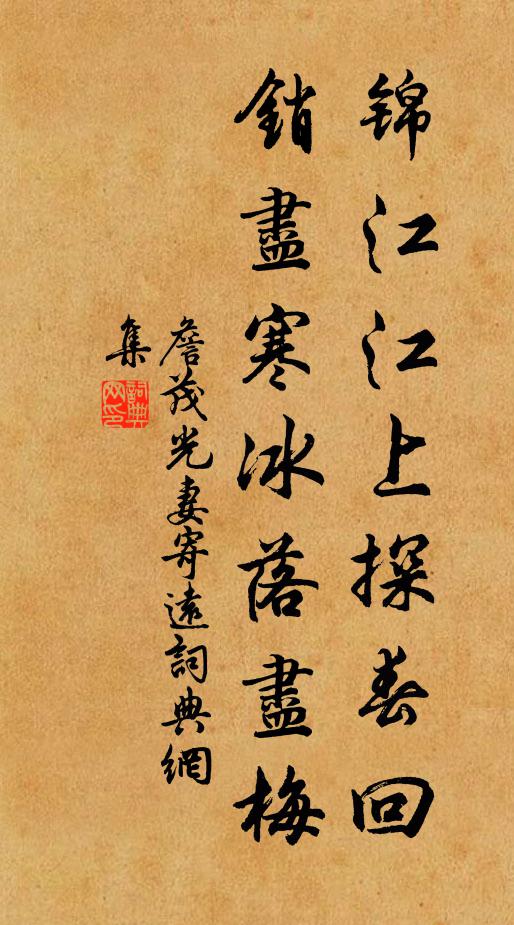 锦江江上探春回
銷盡寒冰落盡梅
詹茂光妻寄遠詞典網
集
詞典
网印